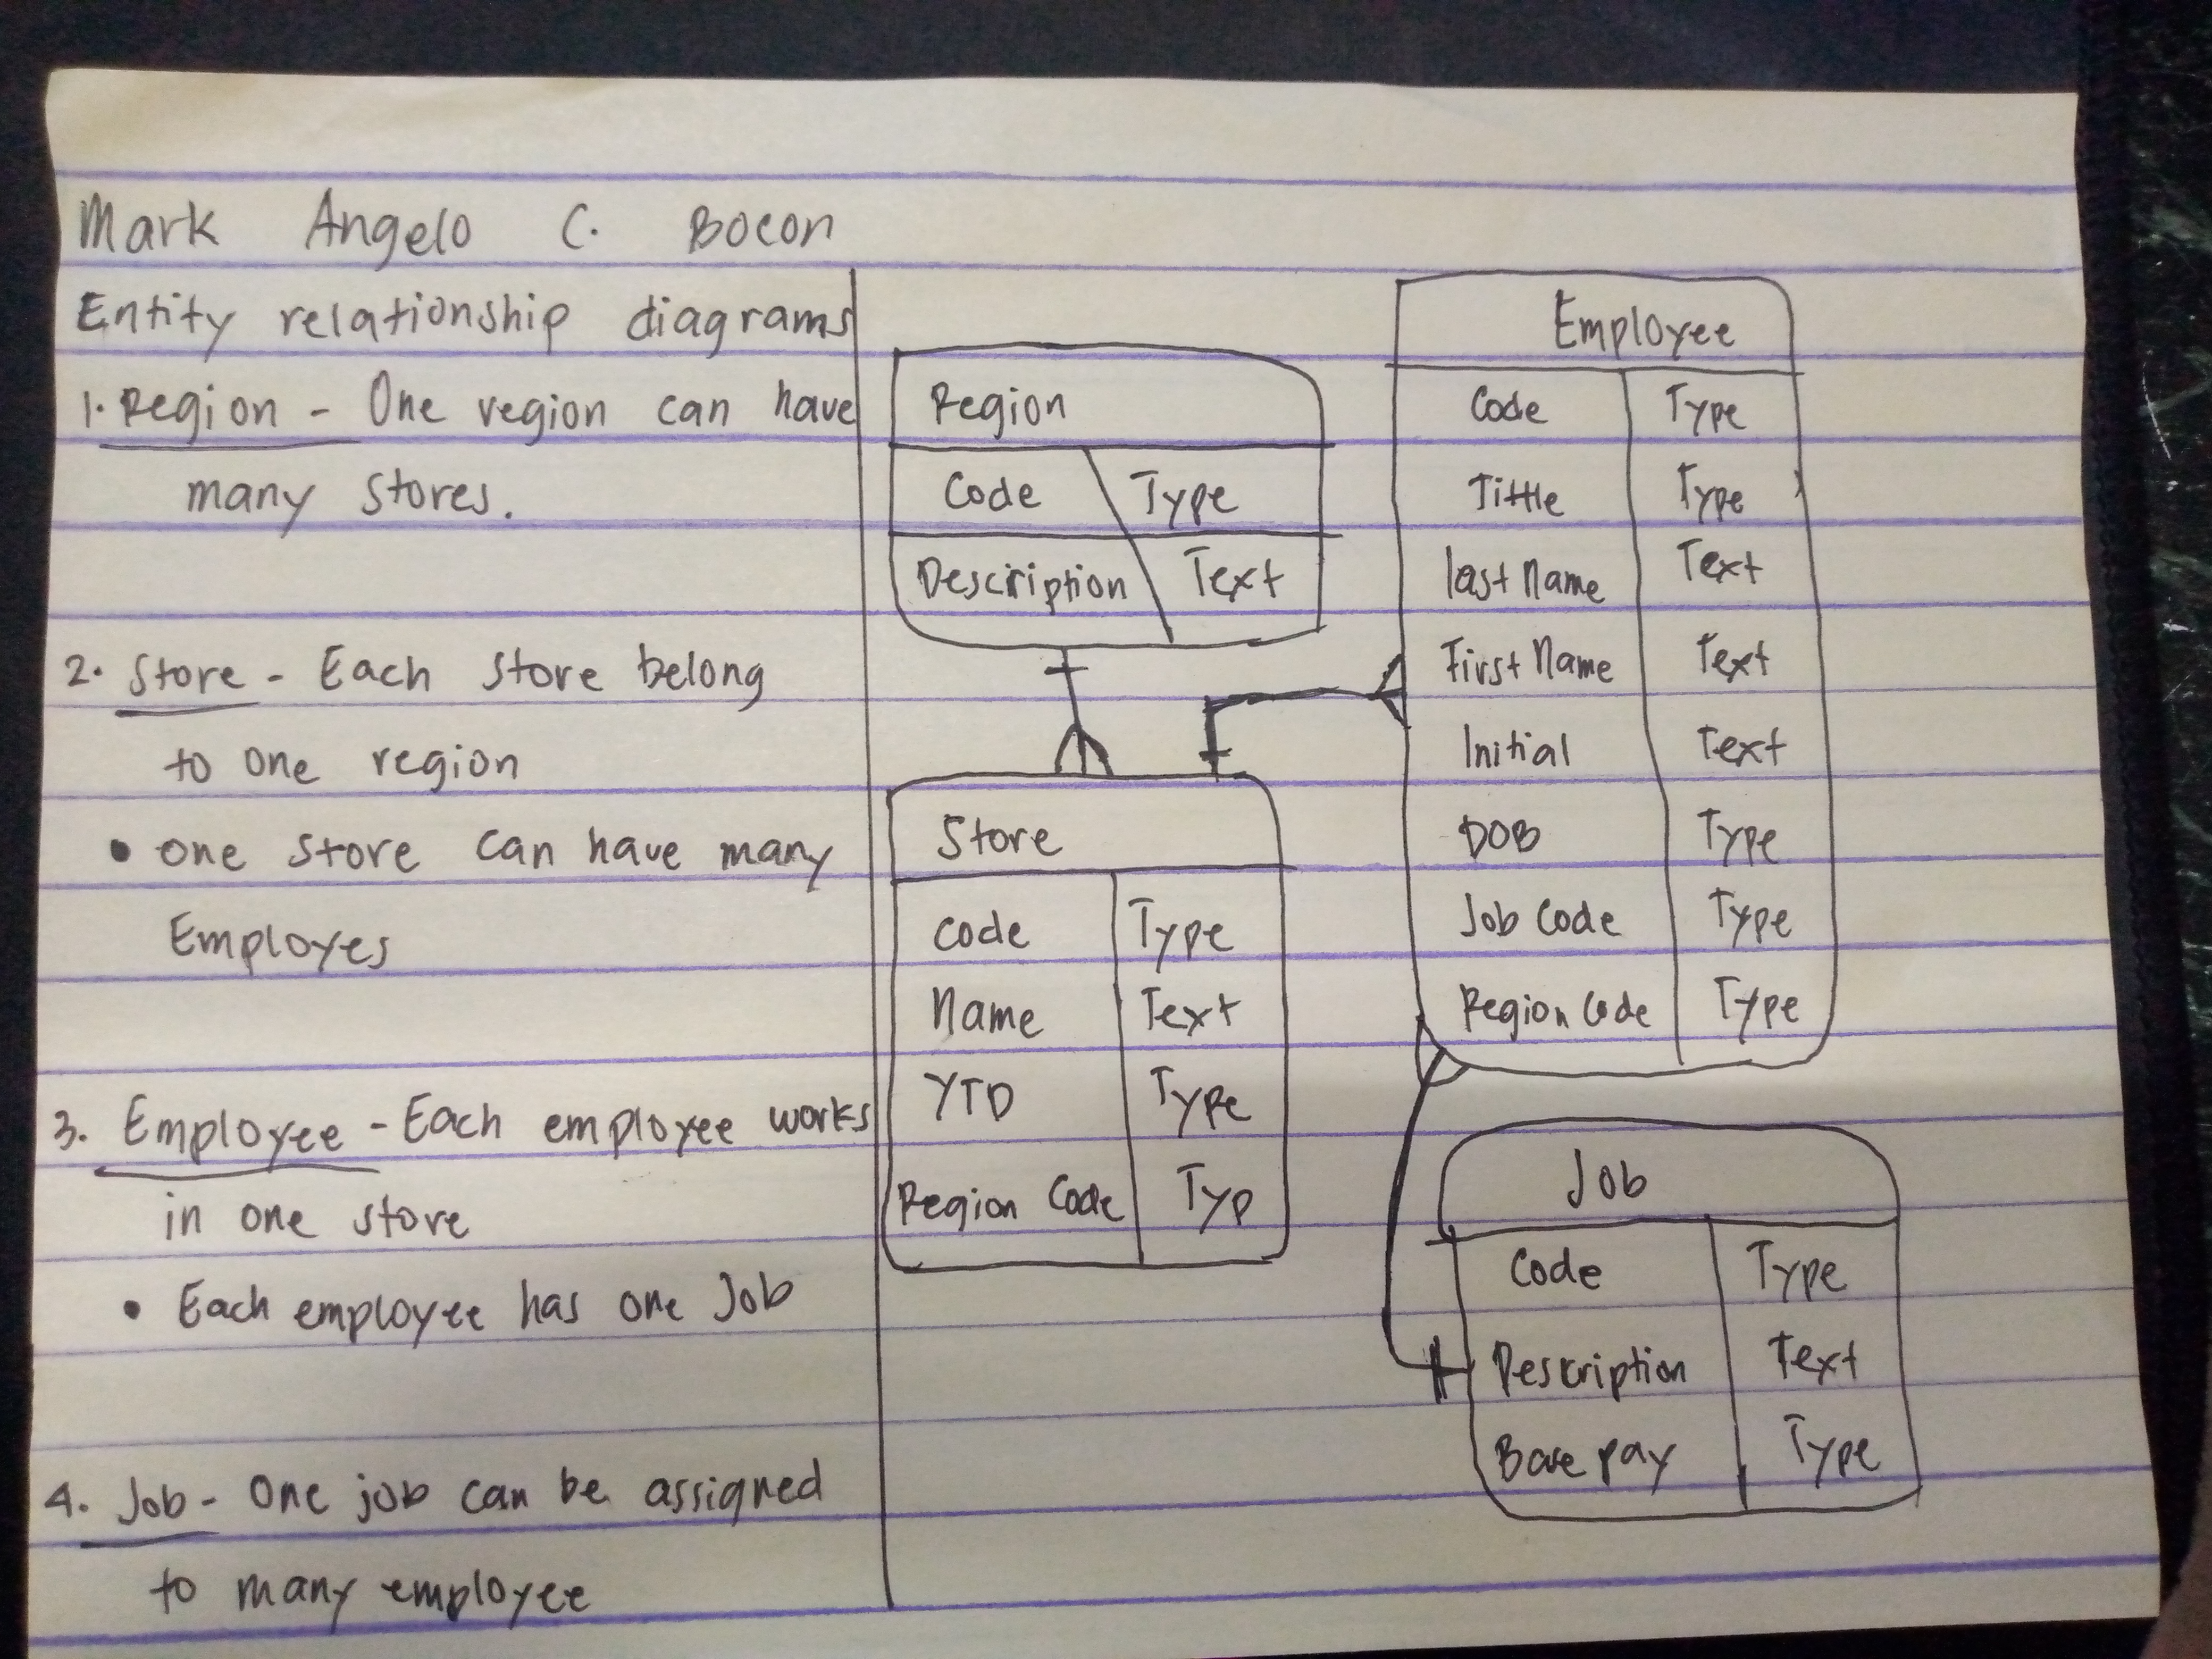 Mark Angelo C. Bocon
Entity relationship diagrams
1. Region - One region can have
many stores.
2. Store - Each store belong
to one region
• one store can have many
Employes
3. Employee - Each employee works
in one store
• Each employee has one Job
4. Job - One job can be assigned
to many employee
Region
Code Type
Description Text
Store
Code Type
Name Text
YTD Type
Region Code Typ
Employee
Code Type
Tittle Type
last Name Text
First Name Text
Initial Text
DOB Type
Job Code Type
Region Code Type
Job
Code Type
Description Text
Base pay Type